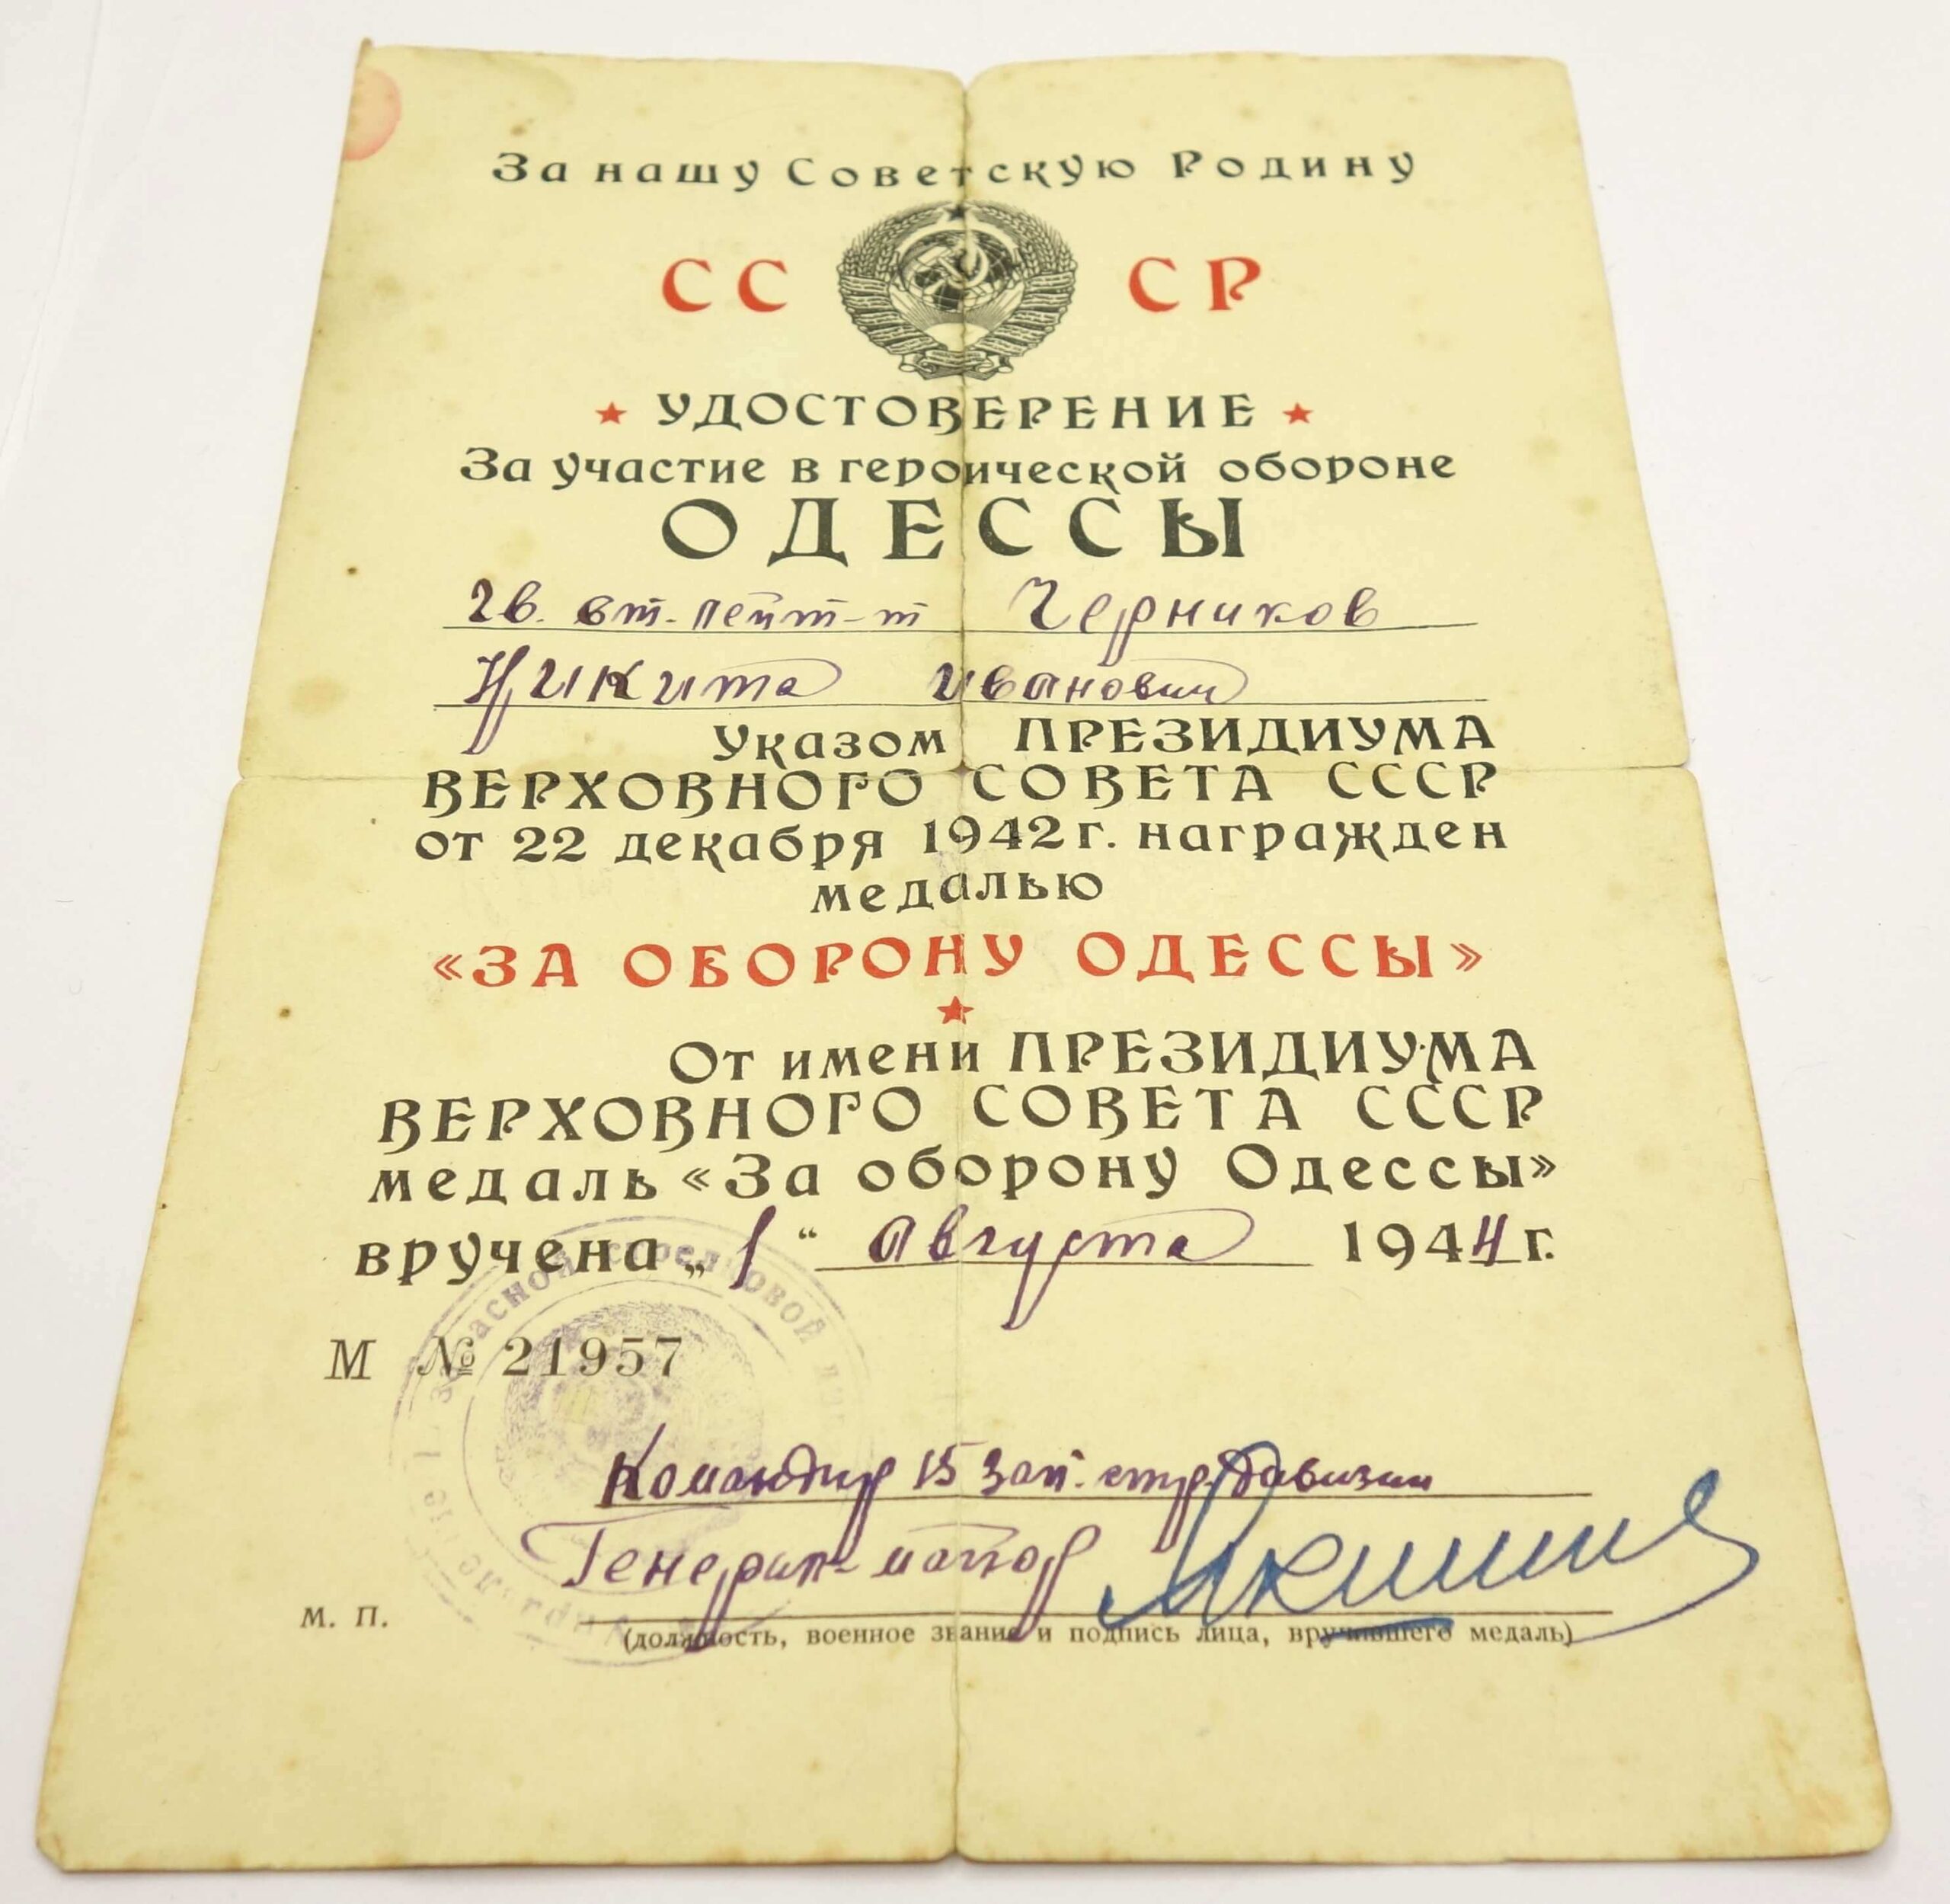 За нашу Советскую Родину
СС СР
УДОСТОВЕРЕНИЕ
За участие в героической обороне
ОДЕССЫ
гв. ст. лейт-т Черников
Никита Иванович
Указом ПРЕЗИДИУМА
ВЕРХОВНОГО СОВЕТА СССР
от 22 декабря 1942 г. награжден
медалью
«ЗА ОБОРОНУ ОДЕССЫ»
От имени ПРЕЗИДИУМА
ВЕРХОВНОГО СОВЕТА СССР
медаль «За оборону Одессы»
вручена „1“ августа 1944 г.
М № 21957
запасной стрелковой
Командир 15 зап. стр. дивизии
Генерал-майор
М. П.
(должность, военное звание и подпись лица, вручившего медаль)